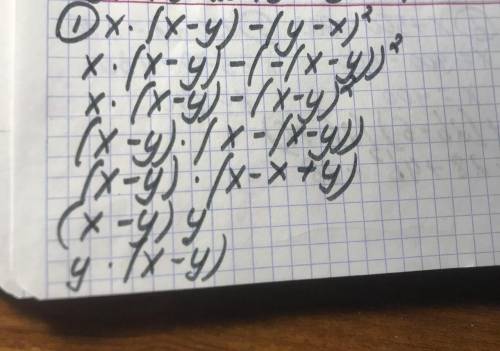 ① x · (x-y) - (y-x)²
x · (x-y) - (-(x-y))²
x · (x-y) - (x-y)²
(x-y) · (x - (x-y))
(x-y) · (x-x+y)
(x-y) y
y · (x-y)